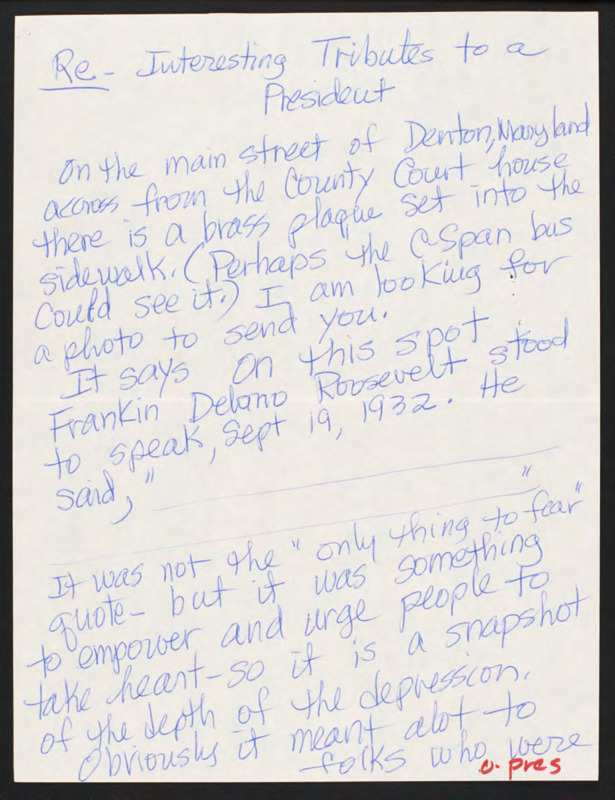 Re - Interesting Tributes to a
President
On the main street of Denton, Maryland
across from the County Court house
there is a brass plaque set into the
sidewalk. (Perhaps the CSpan bus
could see it.) I am looking for
a photo to send you.
It says On this spot
Frankin Delano Roosevelt stood
to speak, Sept 19, 1932. He
said, "
"
It was not the "only thing to fear"
quote - but it was something
to empower and urge people to
take heart - so it is a snapshot
of the depth of the depression.
Obviously it meant alot to
folks who were
o. pres